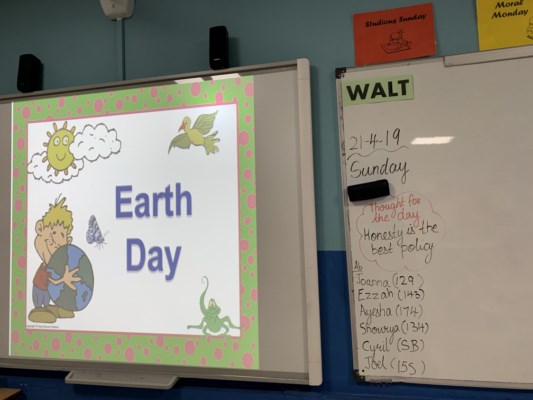 Studious Sunday
Moral
Monday
WALT
Earth
Day
21-4-19
Sunday
Thought for
the day
Honesty is the
best policy
Ab
Joanna (129)
Ezzah (143)
Ayesha (174)
Shourya (134)
Cyril (SB)
Joel (155)